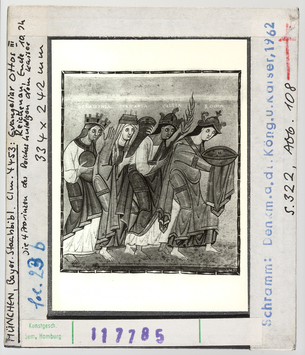 MÜNCHEN, Bayer. Staatsbibl. Clm. 4453: Evangeliar Ottos III
Reichenau, Ende 10. Jh
Die 4 Provinzen des Reiches huldigen dem Kaiser
334 x 242 mm
fol. 23 b
Schramm: Denkm.a.dt. König.u.Kaiser,1962
S. 322 Abb. 108
Kunstgesch.
Sem. Hamburg
117785